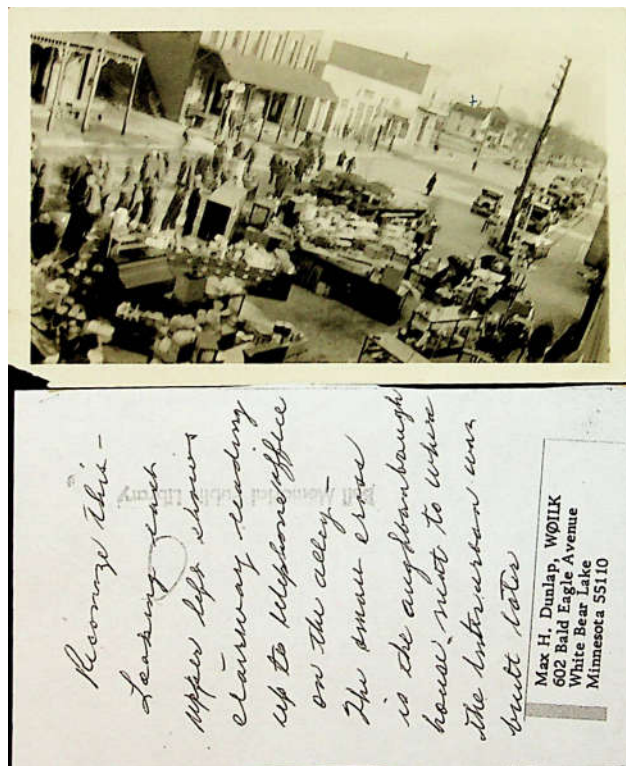 Recognize this -
Looking east
upper left shows
stairway leading
up to telephone office
on the alley -
The small cross
is the aughbanbaugh
house - next to where
the Interurban was
built later
Bell Memorial Public Library
Max H. Dunlap, WØILK
602 Bald Eagle Avenue
White Bear Lake
Minnesota 55110